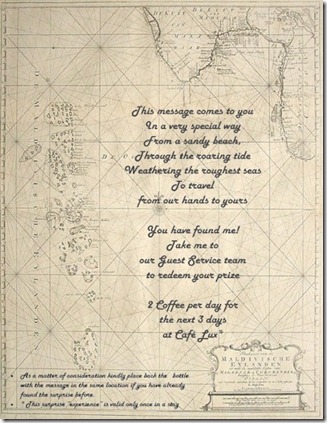 This message comes to you
In a very special way
From a sandy beach,
Through the roaring tide
Weathering the roughest seas
To travel
from our hands to yours
You have found me!
Take me to
our Guest Service team
to redeem your prize
2 Coffee per day for
the next 3 days
at Café Lux*
MALDIVISCHE
EYLANDEN
• As a matter of consideration kindly place back the bottle
with the message in the same location if you have already
found the surprise before.
• *This surprise "experience" is valid only once in a stay